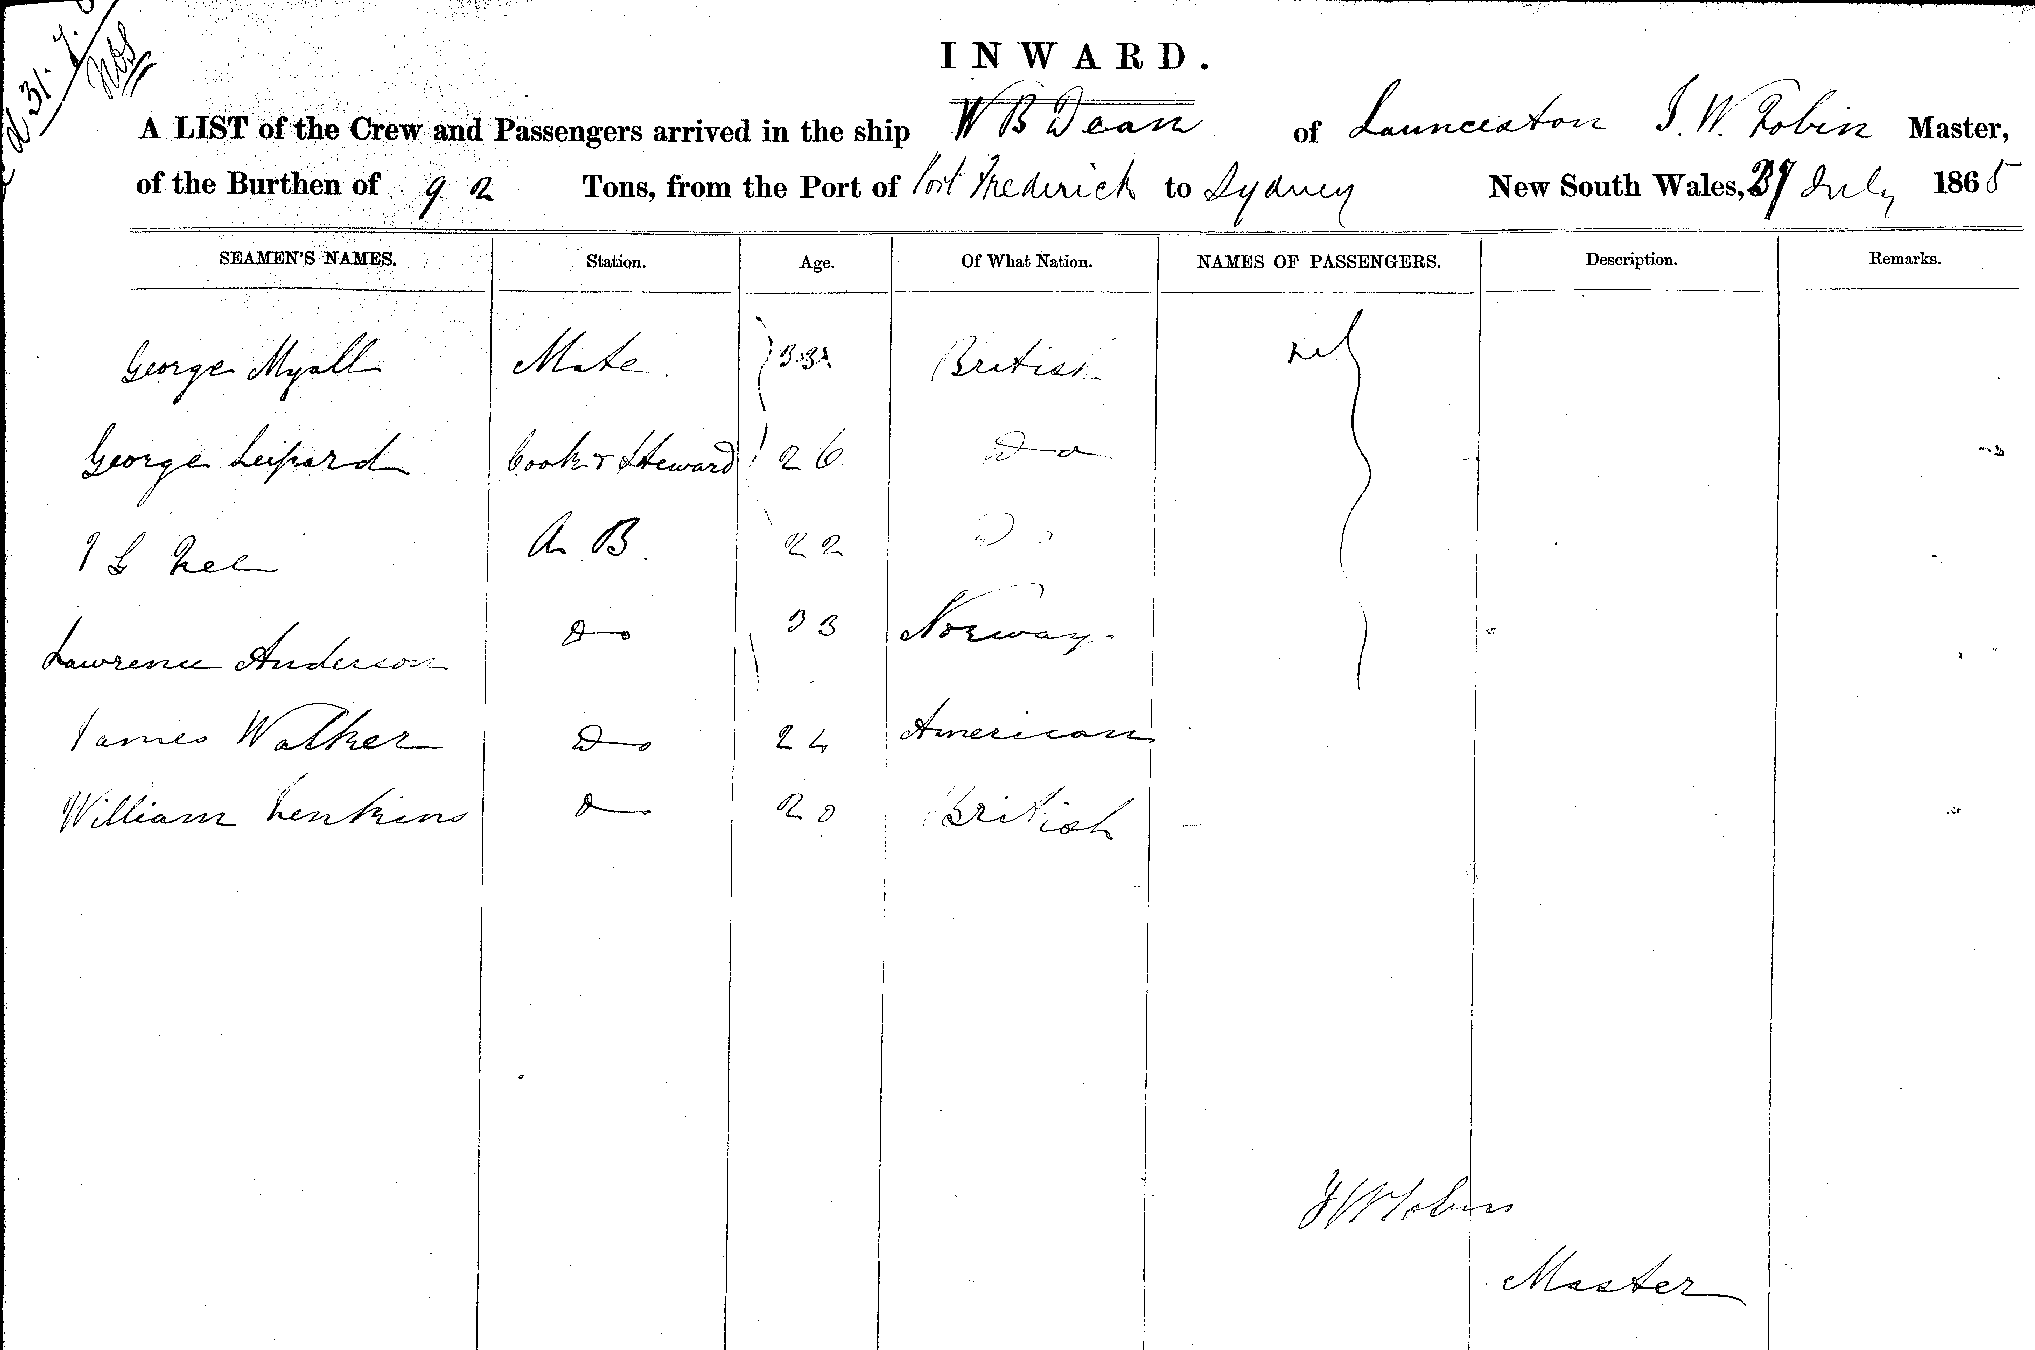 INWARD.
A LIST of the Crew and Passengers arrived in the ship W B Dean of Launceston J. W. Tobin Master,
of the Burthen of 92 Tons, from the Port of Port Frederick to Sydney New South Wales, 27 July 1865
SEAMEN'S NAMES. Station. Age. Of What Nation. NAMES OF PASSENGERS. Description. Remarks.
George Myall Mate British nil
George Leipard Cook & Steward 26 Do
A B 22 Do
Lawrence Anderson Do 33 Norway
James Walker Do 24 American
William Jenkins Do 20 British
J W Tobin
Master